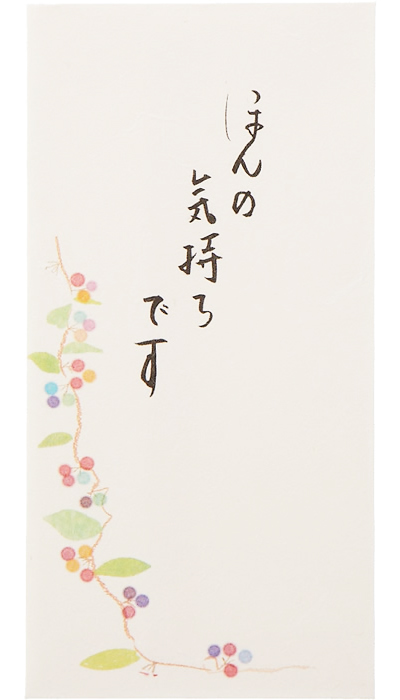 ほんの
気持ち
です